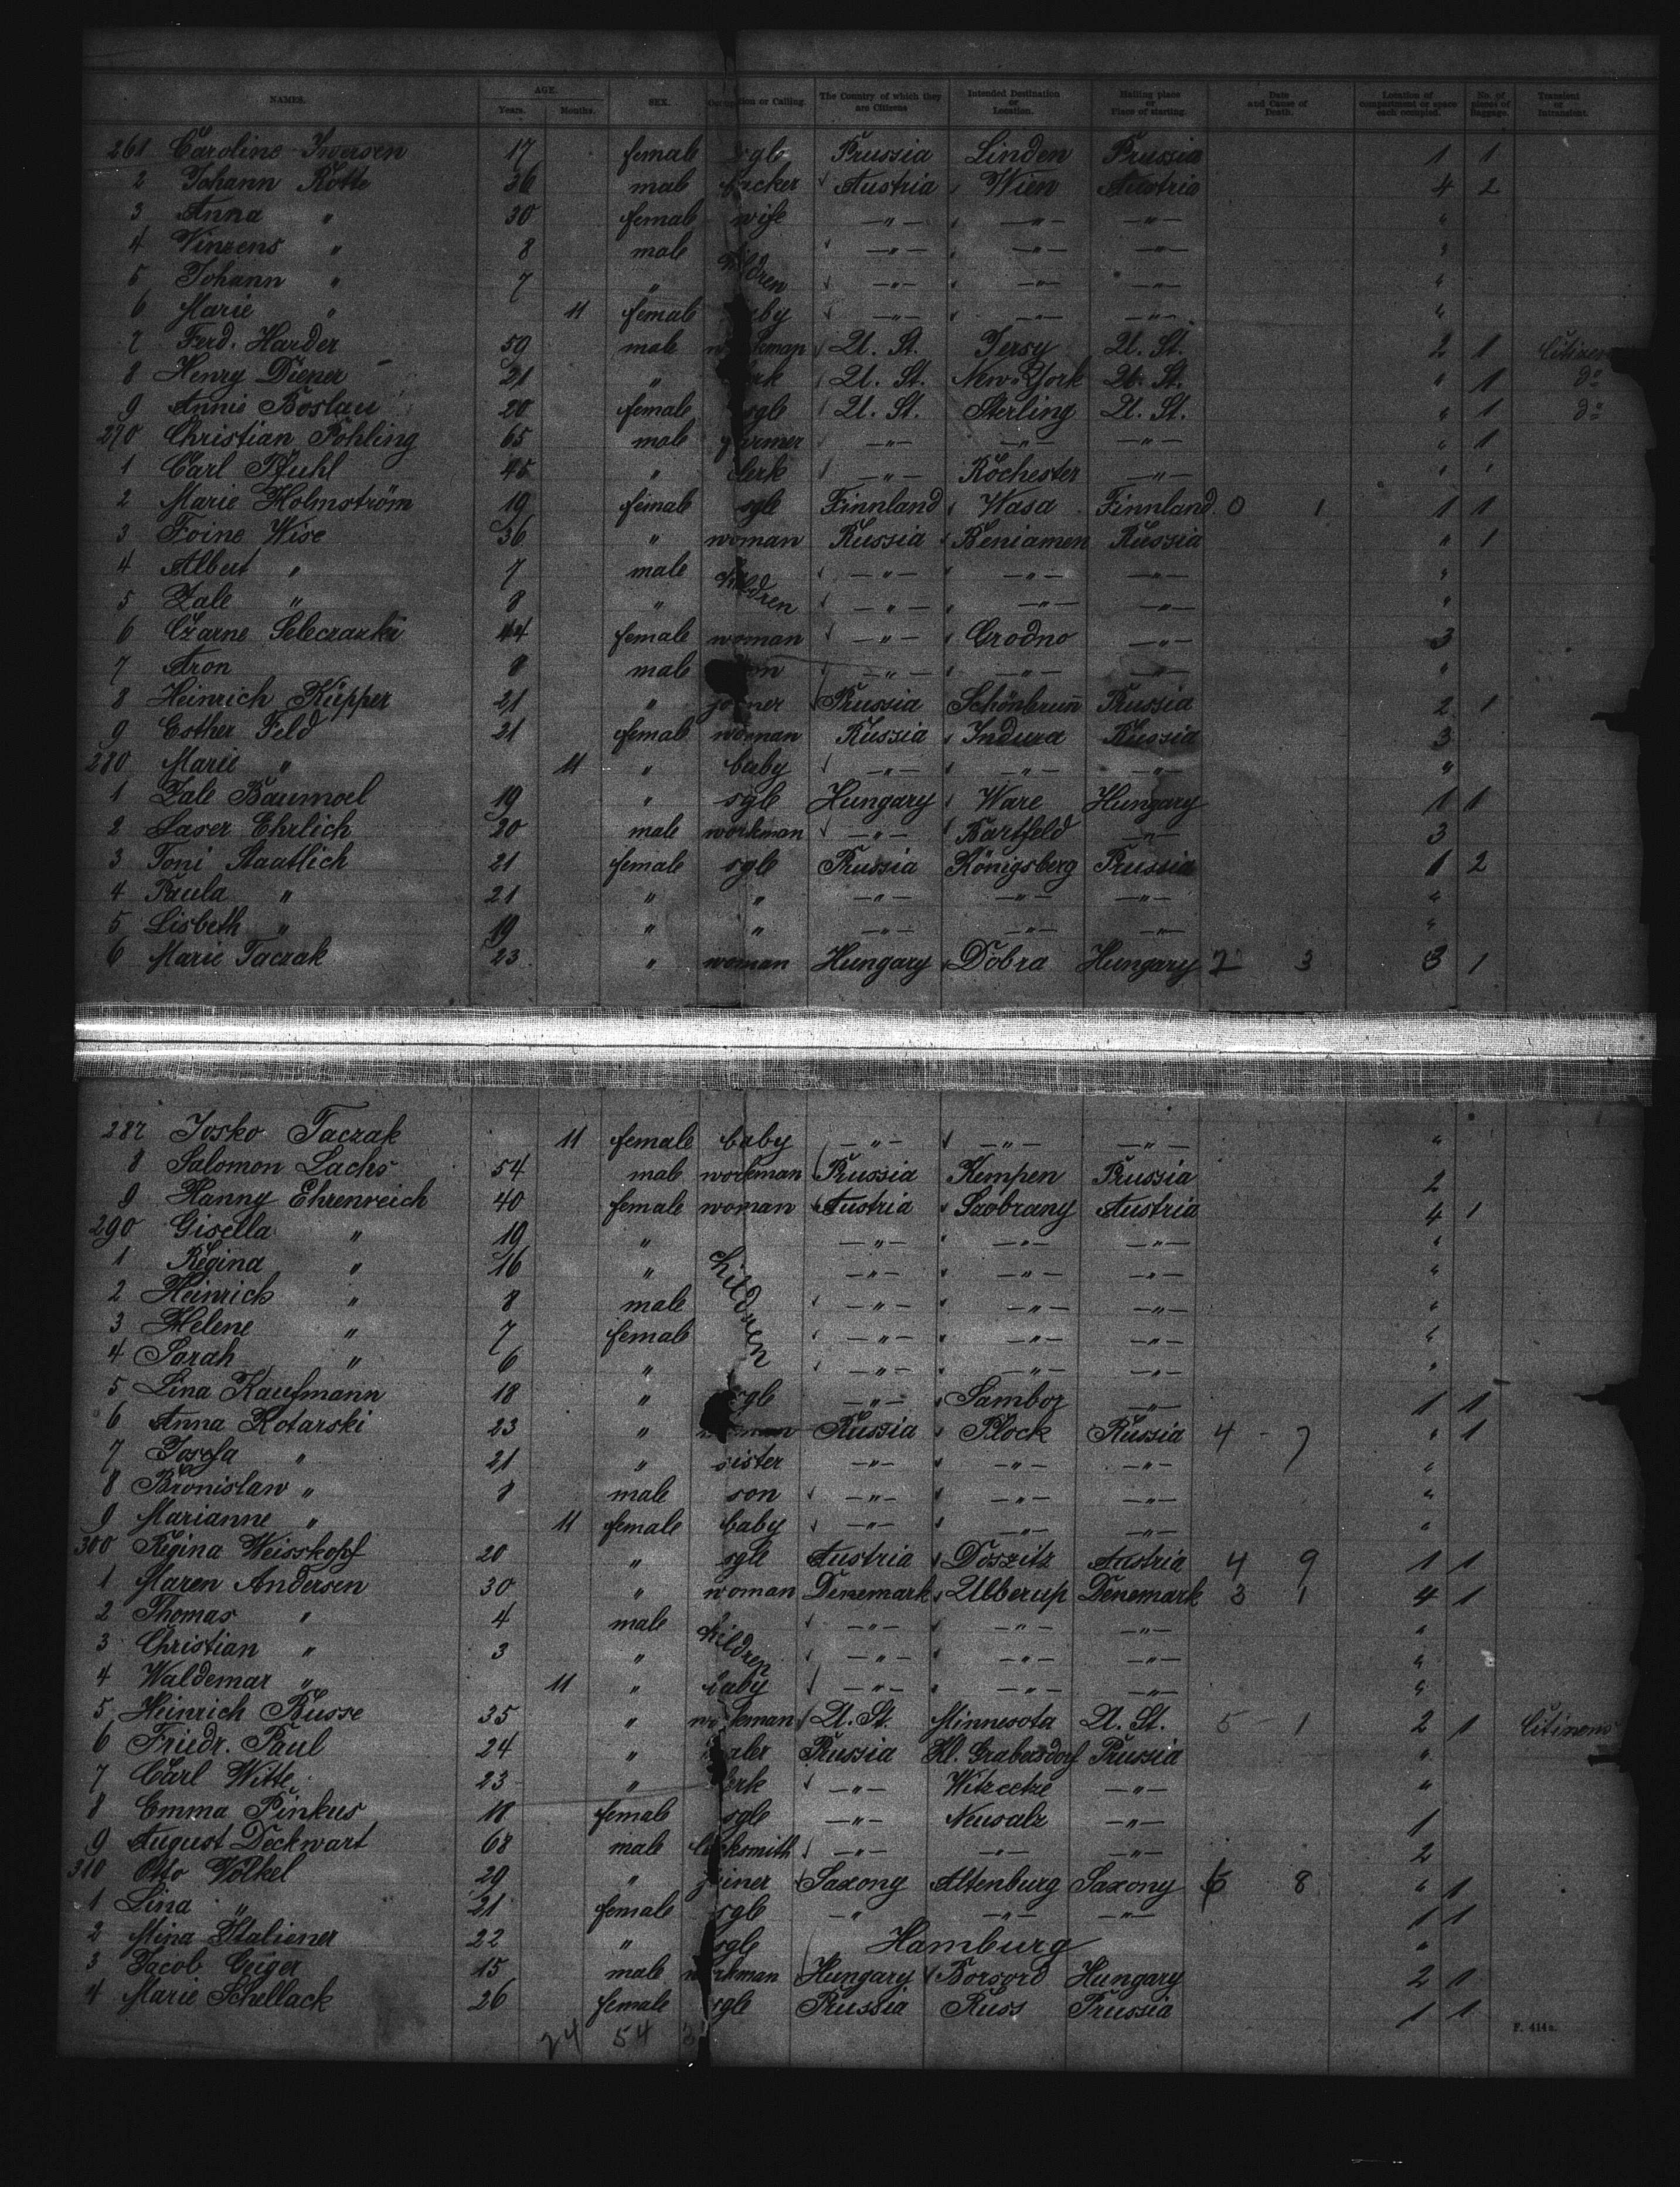 NAMES. AGE. Years. Months. SEX. Occupation or Calling. The Country of which they are Citizens Intended Destination or Location. Hailing place or Place of starting. Date and Cause of Death. Location of compartment or space each occupied. No. of pieces of Baggage. Transient or Intransient.
261 Caroline Iwersen 17 female sgle Prussia Linden Prussia 1 1
2 Johann Rotte 36 male Austria Wien Austria 4 2
3 Anna " 30 female wife —"— —"— —"— "
4 Vinzens " 8 male children —"— —"— —"— "
5 Johann " 7 " —"— —"— —"— "
6 Marie " 11 female baby —"— —"— —"— "
7 Ferd. Harder 59 male workman U. St. Jersy U. St. 2 1 Citizen
8 Henry Diener 21 " clerk U. St. New-York U. St. " 1 do
9 Annie Boslau 20 female sgle U. St. Sterling U. St. " 1 do
270 Christian Pohling 65 male —"— —"— —"— " 1
1 Carl Pfuhl 45 " clerk —"— Rochester —"— " "
2 Marie Holmström 19 female sgle Finnland Wasa Finnland 0 1 1 1
3 Foine Wise 36 " woman Russia Beniamen Russia " 1
4 Albert " 7 male children —"— —"— —"— "
5 Zale " 8 " —"— —"— —"— "
6 Czarne Seleczazki 44 female woman —"— Grodno —"— 3
7 Aron 8 male son —"— —"— —"— "
8 Heinrich Küpper 21 " joiner Prussia Schönbrunn Prussia 2 1
9 Esther Feld 21 female woman Russia Indura Russia 3
280 Marie " 11 " baby —"— —"— —"— "
1 Zale Baumoel 19 " sgle Hungary Ware Hungary 1 1
2 Laser Ehrlich 20 male workman —"— Bartfeld —"— 3
3 Toni Staatlich 21 female sgle Prussia Königsberg Prussia 1 2
4 Paula " 21 " " —"— —"— —"— "
5 Lisbeth " 19 " " —"— —"— —"— "
6 Marie Taczak 23 " woman Hungary Dobra Hungary 2 3 3 1
287 Josko Taczak 11 female baby —"— —"— —"— "
8 Salomon Lachs 54 male workman Prussia Kempen Prussia 2
9 Hanny Ehrenreich 40 female woman Austria Szobrany Austria 4 1
290 Gisella " 19 " children —"— —"— —"— "
1 Regina " 16 " —"— —"— —"— "
2 Heinrich " 8 male —"— —"— —"— "
3 Helene " 7 female —"— —"— —"— "
4 Sarah " 6 " —"— —"— —"— "
5 Lina Kaufmann 18 " sgle —"— Sambor —"— 1 1
6 Anna Kotarski 23 " woman Russia Plock Russia 4 - 7 " 1
7 Josefa " 21 " sister —"— —"— —"— "
8 Bronislaw " 8 male son —"— —"— —"— "
9 Marianne " 11 female baby —"— —"— —"— "
300 Regina Weisskopf 20 " sgle Austria Doszitz Austria 4 9 1 1
1 Maren Andersen 30 " woman Denemark Ulberup Denemark 3 1 4 1
2 Thomas " 4 male children —"— —"— —"— "
3 Christian " 3 " —"— —"— —"— "
4 Waldemar " 11 " baby —"— —"— —"— "
5 Heinrich Busse 35 " workman U. St. Minnesota U. St. 5 - 1 2 1 Citizens
6 Friedr. Paul 24 " Prussia Kl. Grabersdorf Prussia "
7 Carl Witte 23 " clerk —"— Witzeetze —"— "
8 Emma Pinkus 18 female sgle —"— Neusalz —"— 1
9 August Deckwart 68 male locksmith —"— —"— —"— 2
310 Otto Völkel 29 " joiner Saxony Altenburg Saxony 6 8 " 1
1 Lina " 21 female sgle —"— —"— —"— 1 1
2 Mina Italiener 22 " sgle Hamburg "
3 Jacob Geiger 15 male workman Hungary Borsord Hungary 2 1
4 Marie Schellack 26 female sgle Prussia Russ Prussia 1 1
24 54
F. 414a.